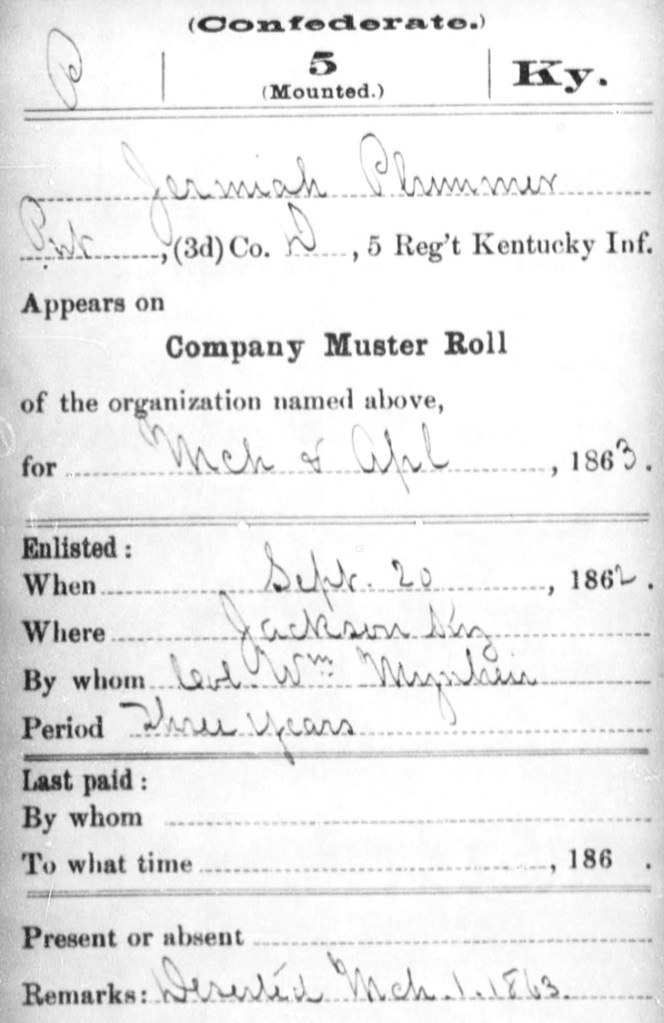 (Confederate.)
P | 5 (Mounted.) | Ky.
Jermiah Plummer
Pvt, (3d) Co. D, 5 Reg't Kentucky Inf.
Appears on
Company Muster Roll
of the organization named above,
for Mch & Apl, 1863.
Enlisted:
When Sept. 20, 1862.
Where Jackson Ky
By whom Col. Wm Mynheir
Period Three years
Last paid:
By whom
To what time, 186 .
Present or absent
Remarks: Deserted Mch. 1. 1863.